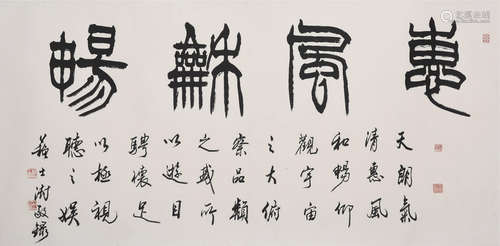 惠風龢暢
天朗氣
清惠風
和暢仰
觀宇宙
之大俯
察品類
之盛所
以遊目
騁懷足
以極視
聽之娛
蘇士澍敬錄